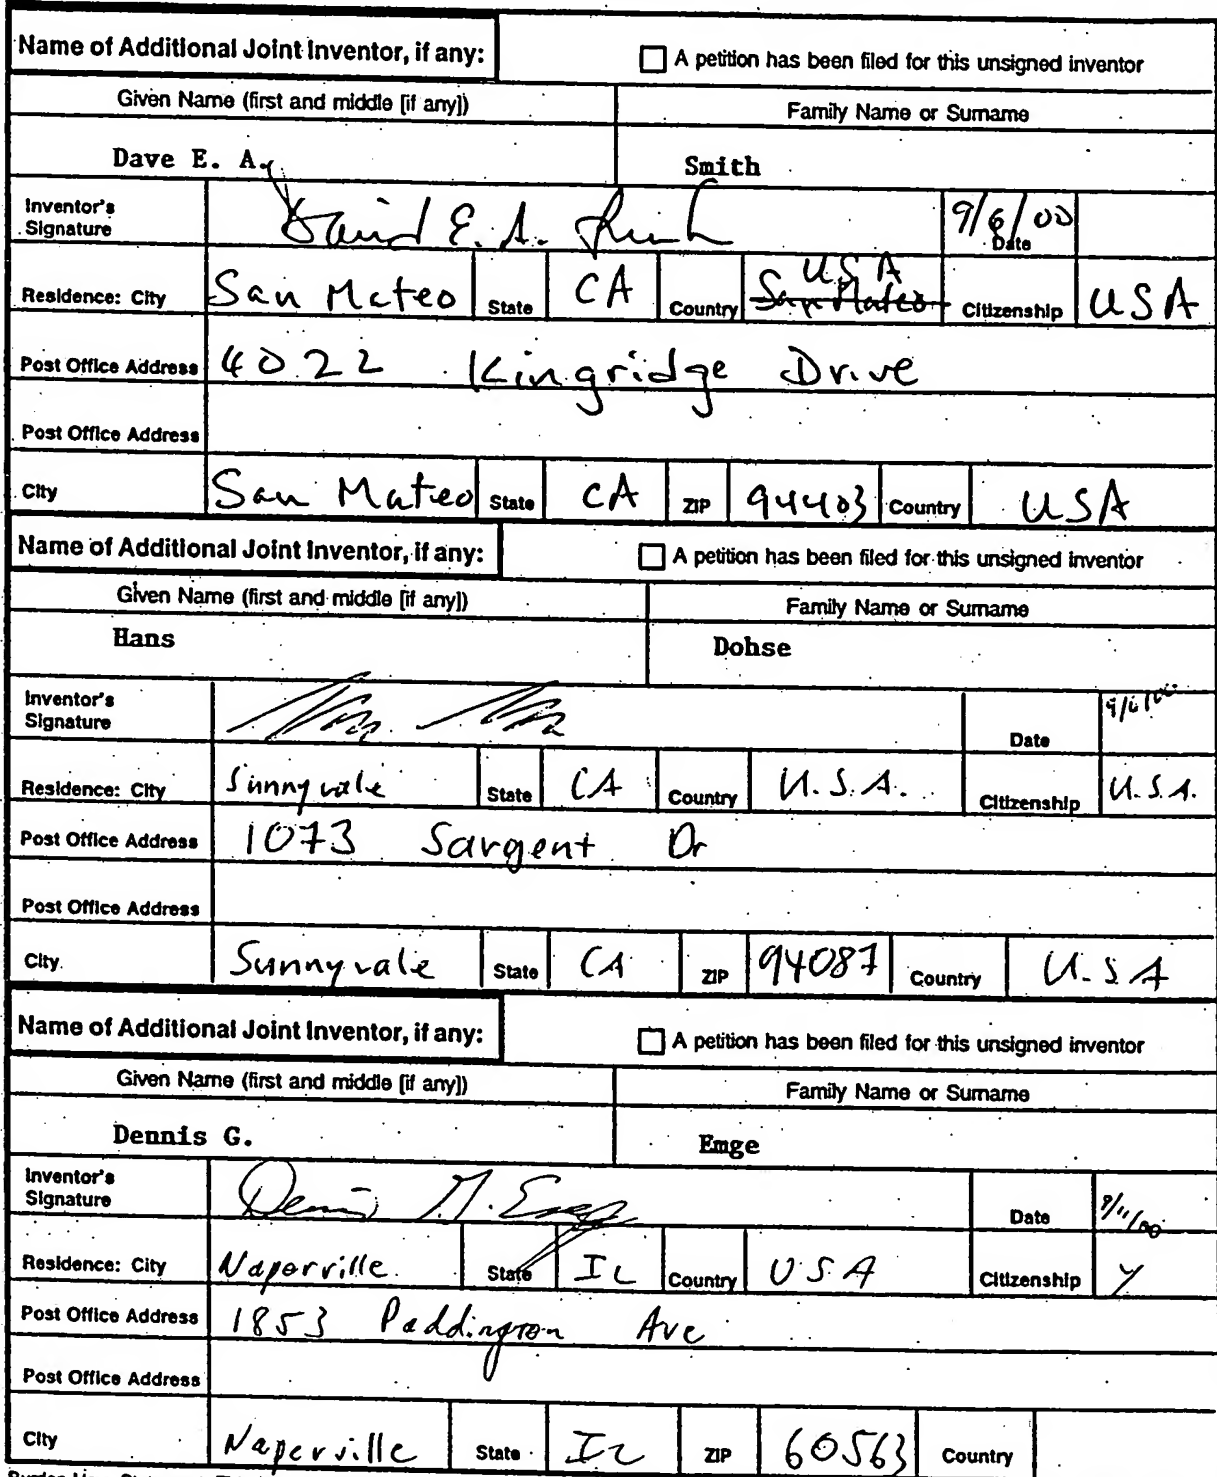 Name of Additional Joint Inventor, if any: A petition has been filed for this unsigned inventor
Given Name (first and middle [if any]) Family Name or Surname
Dave E. A. Smith
Inventor's Signature David E. A. Smith 9/6/00 Date
Residence: City San Mateo State CA Country USA San Mateo Citizenship USA
Post Office Address 4022 Kingridge Drive
Post Office Address
City San Mateo State CA ZIP 94403 Country USA
Name of Additional Joint Inventor, if any: A petition has been filed for this unsigned inventor
Given Name (first and middle [if any]) Family Name or Surname
Hans Dohse
Inventor's Signature Date
Residence: City Sunnyvale State CA Country U.S.A. Citizenship U.S.A.
Post Office Address 1073 Sargent Dr
Post Office Address
City. Sunnyvale State CA ZIP 94087 Country U.S.A
Name of Additional Joint Inventor, if any: A petition has been filed for this unsigned inventor
Given Name (first and middle [if any]) Family Name or Surname
Dennis G. Emge
Inventor's Signature Dennis G. Emge Date 9/11/00
Residence: City Naperville State IL Country USA Citizenship Y
Post Office Address 1853 Paddington Ave
Post Office Address
City Naperville State IL ZIP 60563 Country